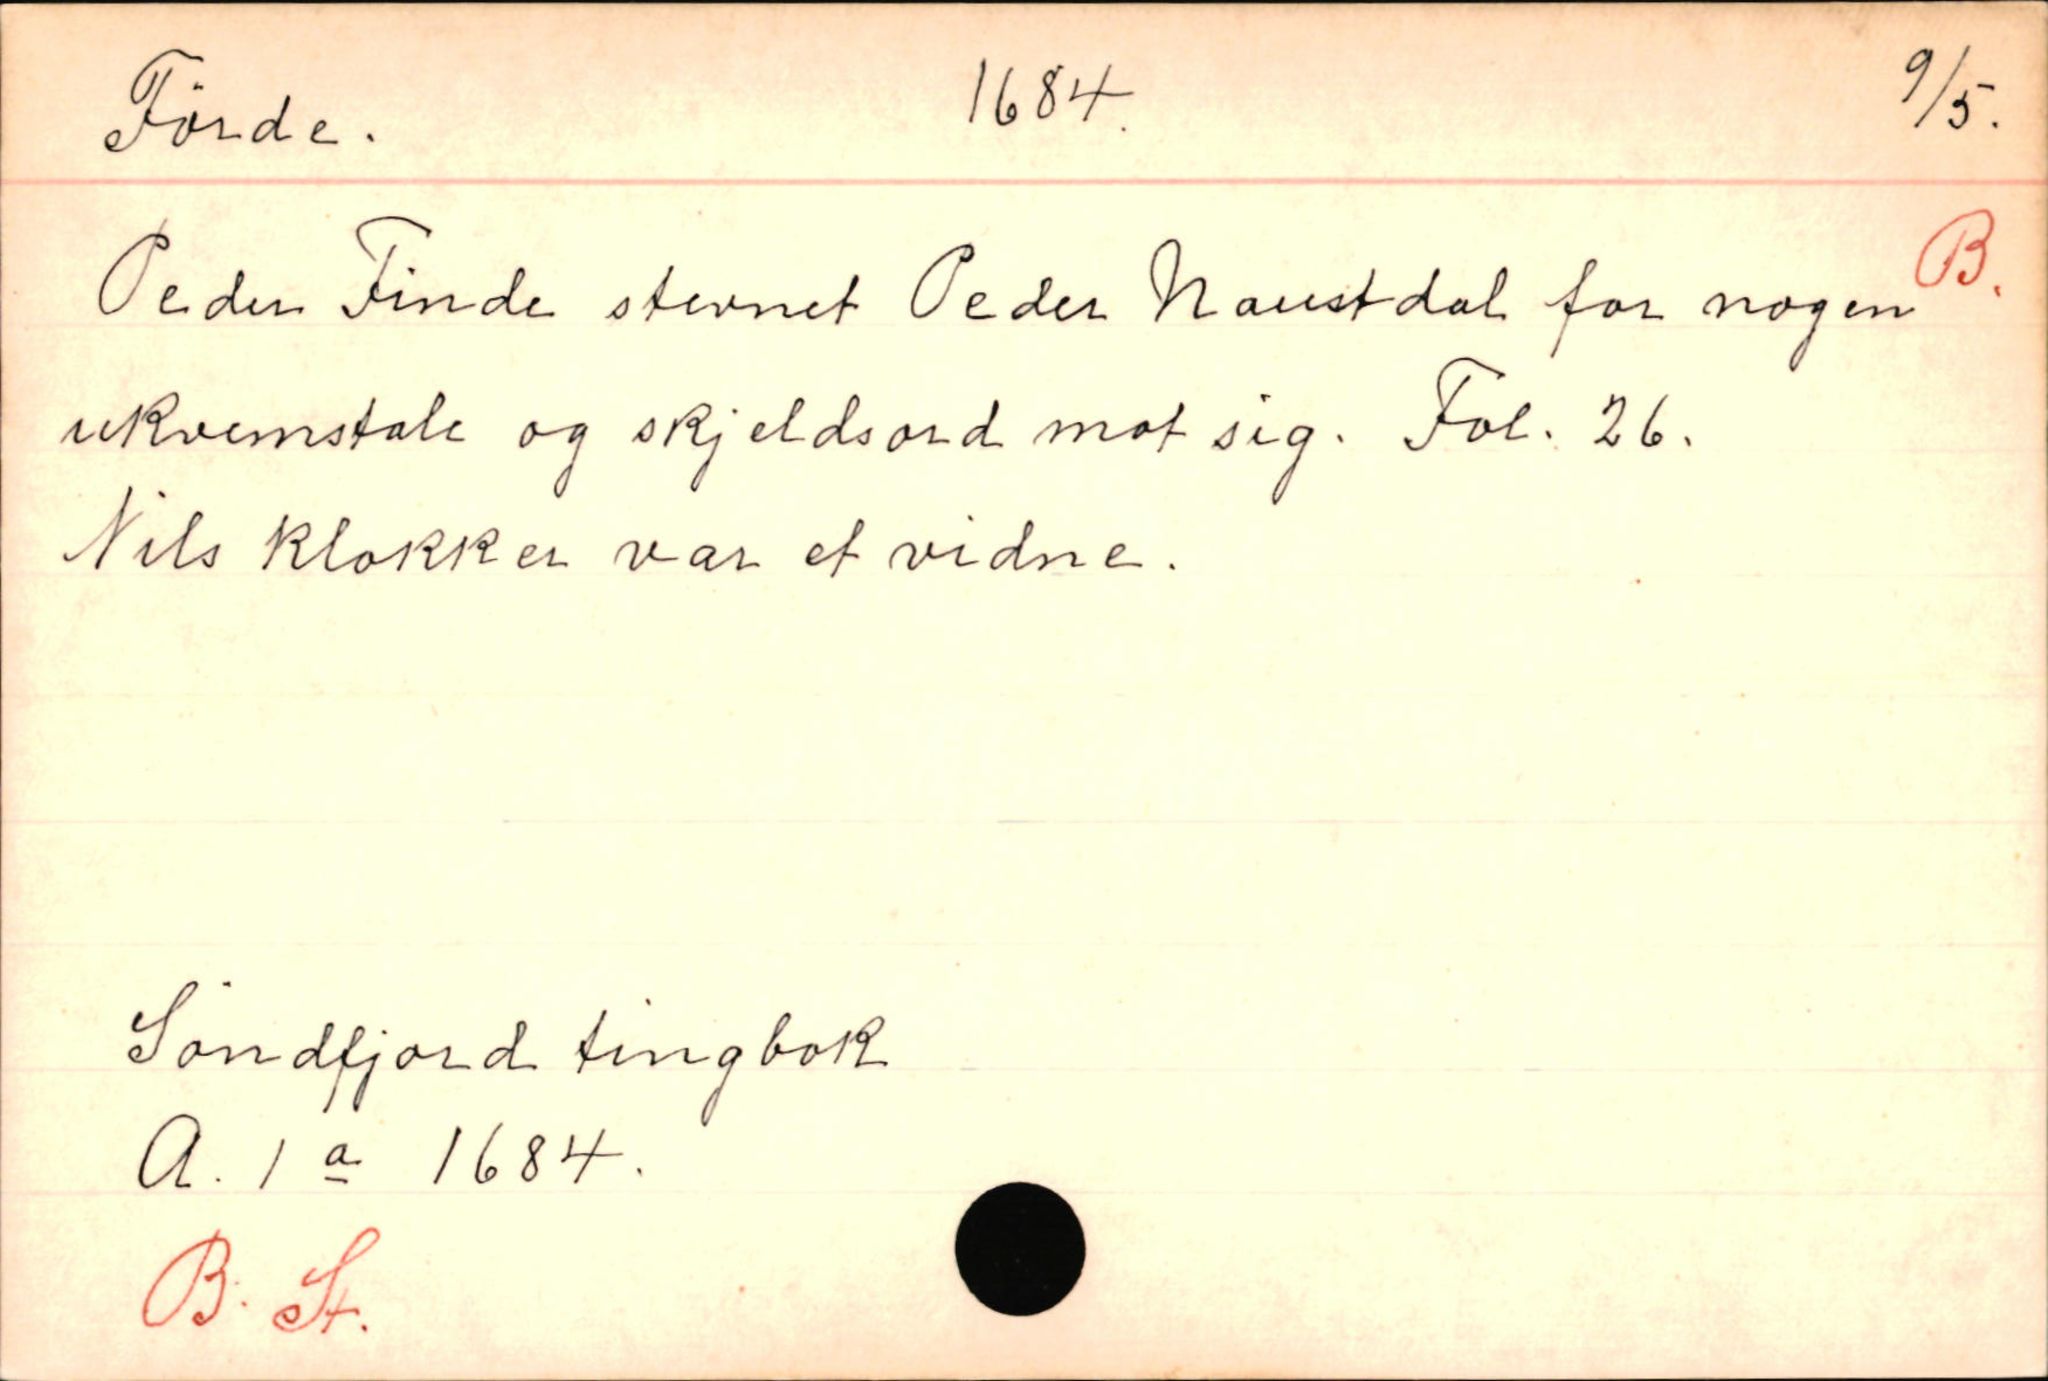 Förde. 1684. 9/5.
B.
Peder Finde stevnet Peder Naustdal for nogen
ukvemstale og skjeldsord mot sig. Fol. 26.
Nils klokker var et vidne.
Söndfjord tingbok
A. 1 a 1684.
B. St.